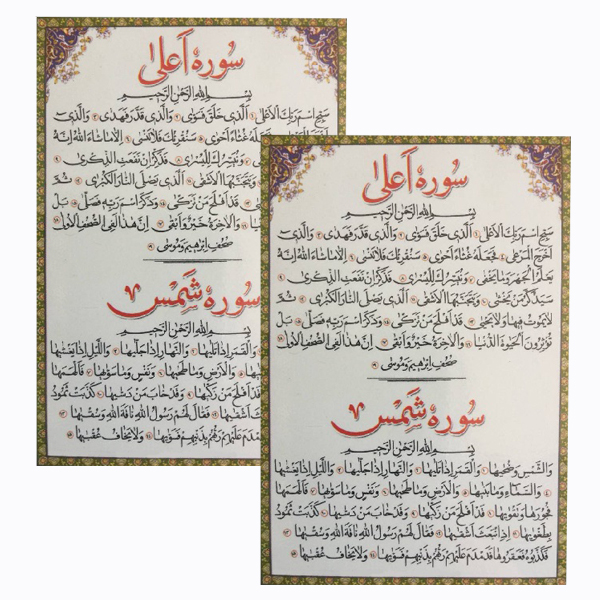 سورهٔ اَعلیٰ
بِسْمِ اللهِ الرَّحْمٰنِ الرَّحیمِ
سَبِّحِ اسْمَ رَبِّكَ الْاَعْلَى ۱ اَلَّذى خَلَقَ فَسَوّٰى ۲ وَالَّذى قَدَّرَ فَهَدٰى ۳ وَالَّذى
اَخْرَجَ الْمَرْعٰى ۴ فَجَعَلَهُ غُثَآءً اَحْوٰى ۵ سَنُقْرِئُكَ فَلاتَنْسٰى ۶ اِلّا ماشآءَ اللهُ اِنَّهُ
يَعْلَمُ الْجَهْرَ وَمايَخْفٰى ۷ وَنُيَسِّرُكَ لِلْيُسْرٰى ۸ فَذَكِّرْ اِنْ نَفَعَتِ الذِّكْرٰى ۹
سَيَذَّكَّرُ مَنْ يَخْشٰى ۱۰ وَيَتَجَنَّبُهَا الْاَشْقَى ۱۱ اَلَّذى يَصْلَى النّارَ الْكُبْرٰى ۱۲ ثُمَّ
لايَمُوتُ فيها وَلايَحْيٰى ۱۳ قَدْ اَفْلَحَ مَنْ تَزَكّٰى ۱۴ وَذَكَرَ اسْمَ رَبِّه فَصَلّٰى ۱۵ بَلْ
تُؤْثِرُونَ الْحَيٰوةَ الدُّنْيا ۱۶ وَالْاٰخِرَةُ خَيْرٌ وَاَبْقٰى ۱۷ اِنَّ هٰذا لَفِى الصُّحُفِ الْاُولٰى ۱۸
صُحُفِ اِبْرٰهيمَ وَمُوسٰى ۱۹
سورهٔ شَمِس ۷
بِسْمِ اللهِ الرَّحْمٰنِ الرَّحیمِ
وَالشَّمْسِ وَضُحٰيها ۱ وَالْقَمَرِ اِذا تَلٰيها ۲ وَالنَّهارِ اِذا جَلّٰيها ۳ وَاللَّيْلِ اِذا يَغْشٰيها
۴ وَالسَّمآءِ وَمابَنٰيها ۵ وَالْاَرْضِ وَماطَحٰيها ۶ وَنَفْسٍ وَماسَوّٰيها ۷ فَاَلْهَمَها
فُجُورَها وَتَقْوٰيها ۸ قَدْ اَفْلَحَ مَنْ زَكّٰيها ۹ وَقَدْ خابَ مَنْ دَسّٰيها ۱۰ كَذَّبَتْ ثَمُودُ
بِطَغْوٰيها ۱۱ اِذِ انْبَعَثَ اَشْقٰيها ۱۲ فَقالَ لَهُمْ رَسُولُ اللهِ ناقَةَ اللهِ وَسُقْيٰها ۱۳
فَكَذَّبُوهُ فَعَقَرُوها فَدَمْدَمَ عَلَيْهِمْ رَبُّهُمْ بِذَنْبِهِمْ فَسَوّٰيها ۱۴ وَلايَخافُ عُقْبٰيها ۱۵